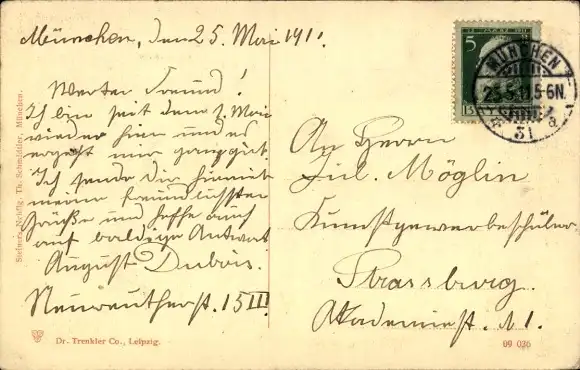 München, den 25. Mai 1911.
Werter Freund!
Ich bin seit dem 2. Mai
wieder hier und es
ergeht mir ganz gut.
Ich sende Dir hiermit
meine freundlichsten
Grüße und hoffe auf
auf baldige Antwort
August Dubois.
Neureutherst. 15 III.
An Herrn
Jul. Möglin
Kunstgewerbeschüler
Strassburg.
Akademiest. N 1.
5
MÜNCHEN
25.5.11.5-6N.
31 a.
Dr. Trenkler Co., Leipzig.
09 036